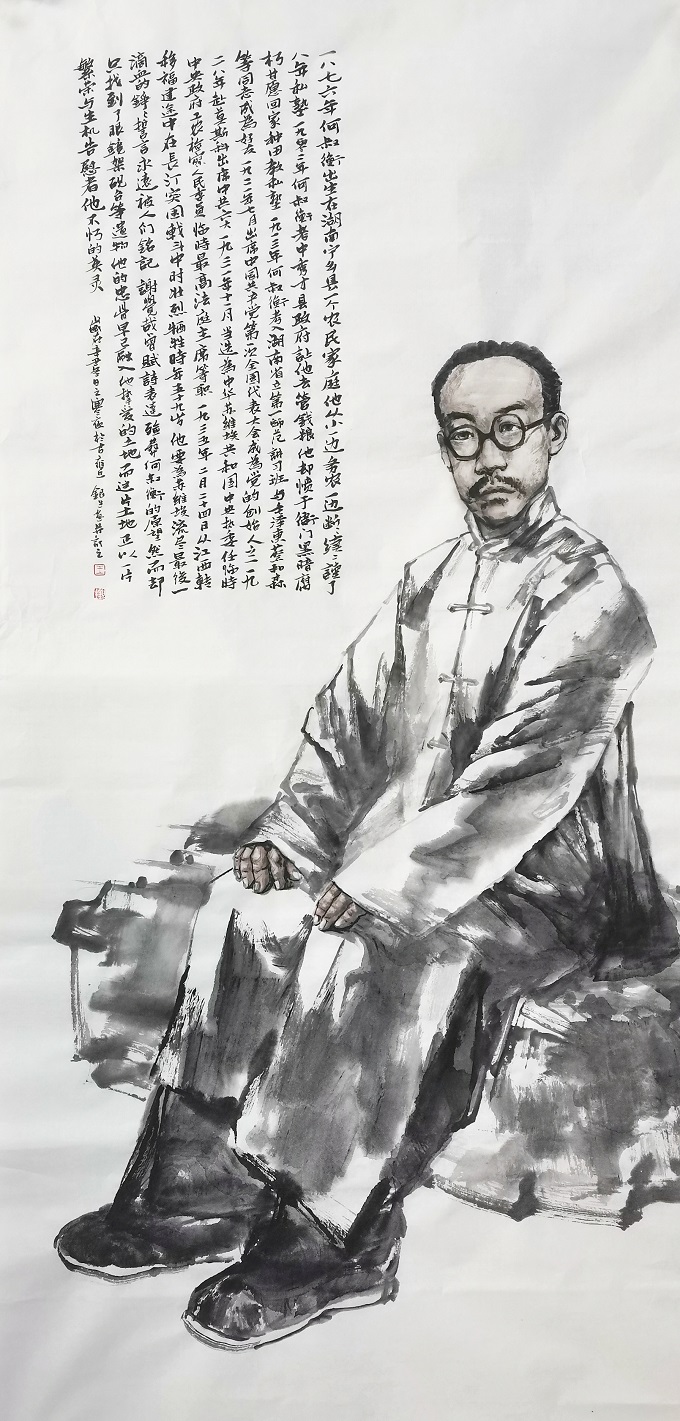 一八七六年何叔衡出生在湖南宁乡县一个农民家庭他从小一边务农一边断续续读了
八年私塾一九零二年何叔衡考中秀才县政府让他去管钱粮他却愤于衙门黑暗腐
朽甘愿回家种田教私塾一九一三年何叔衡考入湖南省立第一师范讲习班与毛泽东蔡和森
等同志成为好友一九二一年七月出席中国共产党第一次全国代表大会成为党的创始人之一一九
二八年赴莫斯科出席中共六大一九三一年十一月当选为中华苏维埃共和国中央执委任临时
中央政府工农检察人民委员临时最高法庭主席等职一九三五年二月二十四日从江西转
移福建途中在長汀突围战斗中时壮烈牺牲時年五十九岁他要為苏维埃流尽最後一
滴血的錚々誓言永遠被人们銘記 謝覺哉曾賦詩表達強葬何叔衡的愿望然而却
只找到了眼鏡架砚台等遺物他的忠骨早已融入他摯爱的土地而这片土地正以一片
繁荣与生机告慰着他不朽的英灵